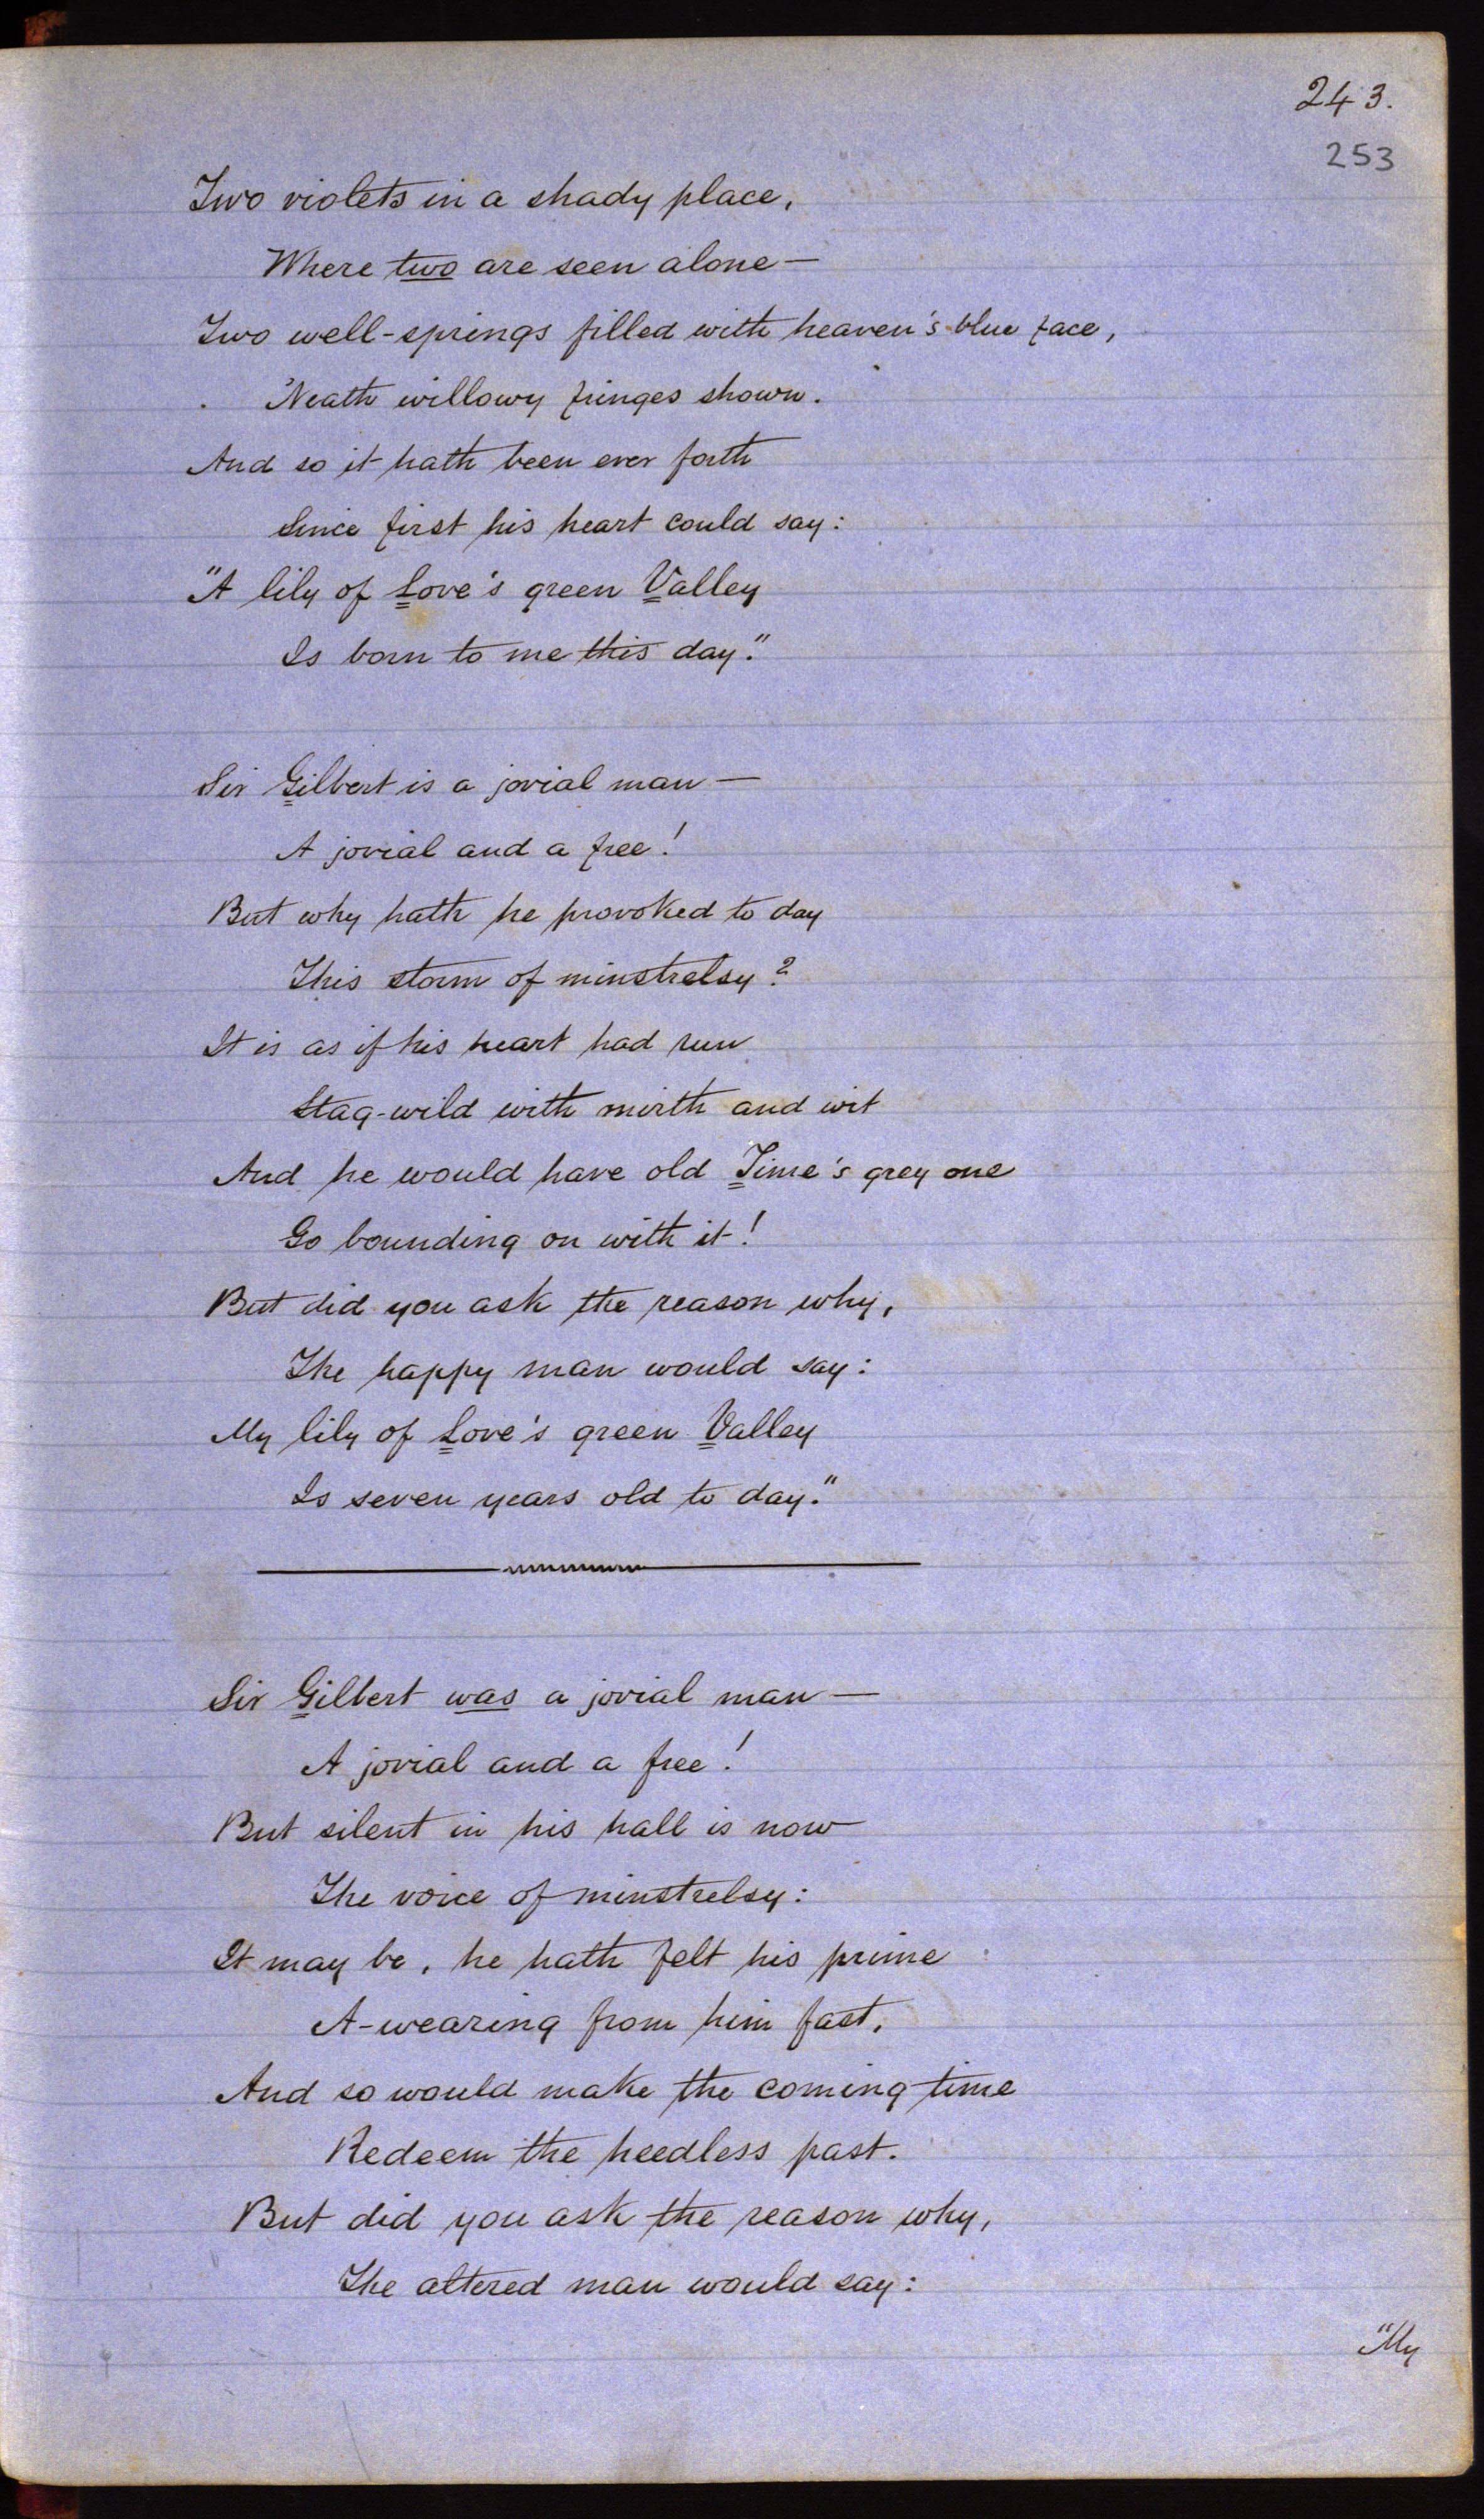 243.
253
Two violets in a shady place,
Where two are seen alone —
Two well-springs filled with heaven's blue face,
'Neath willowy fringes shown.
And so it hath been ever forth
Since first his heart could say:
"A lily of Love's green Valley
Is born to me this day."
Sir Gilbert is a jovial man —
A jovial and a free!
But why hath he provoked to day
This storm of minstrelsy?
It is as if his heart had run
Stag-wild with mirth and wit
And he would have old Time's grey one
Go bounding on with it!
But did you ask the reason why,
The happy man would say:
My lily of Love's green Valley
Is seven years old to day."
Sir Gilbert was a jovial man —
A jovial and a free!
But silent in his hall is now
The voice of minstrelsy:
It may be, he hath felt his prime
A-wearing from him fast,
And so would make the coming time
Redeem the heedless past.
But did you ask the reason why,
The altered man would say:
"My